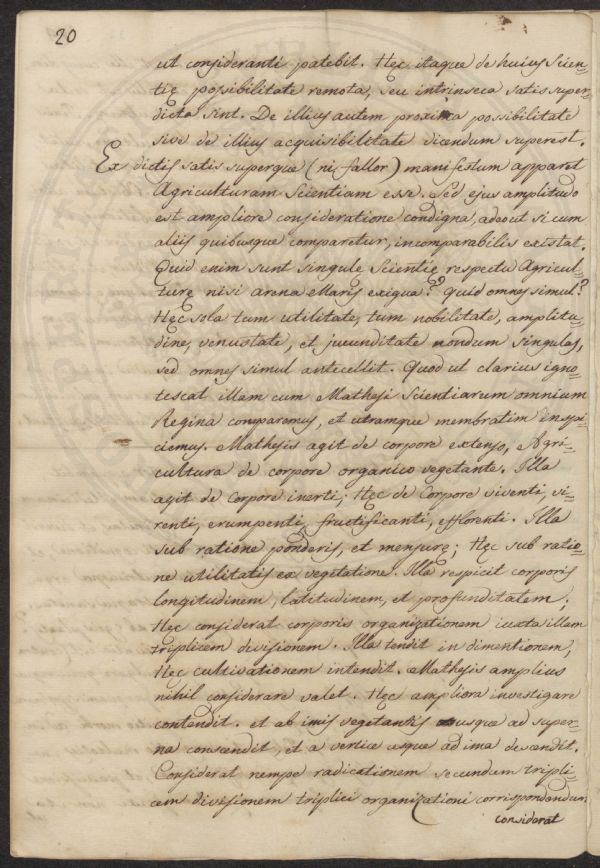 20
ut consideranti patebit. Hęc itaque de huius Scien=
tię possibilitate remota, seu intrinseca satis super=
dicta sint. De illius autem proxima possibilitate
sive de illius acquisibilitate dicendum superest.
Ex dictis satis superque (ni fallor) manifestum apparet
Agriculturam Scientiam esse. Sed ejus amplitudo
est ampliore consideratione condigna, adeout si cum
aliis quibusque comparetur, incomparabilis existat.
Quid enim sunt singulę Scientię respectu Agricul=
turę nisi arena Maris exigua? Quid omnes simul?
Hęc sola tum utilitate, tum nobilitate, amplitu=
dine, venustate, et jucunditate nondum singulas,
sed omnes simul antecellit. Quod ut clarius igno=
tescat illam cum Mathesi Scientiarum omnium
Regina comparemus, et utramque membratim inspi=
ciemus. Mathesis agit de corpore extenso, Agri=
cultura de corpore organico vegetante. Illa
agit de Corpore inerti; Hęc de Corpore viventi, vi=
renti, erumpenti, fructificanti, efflorenti. Illa
sub ratione ponderis, et mensurę; Hęc sub ratio=
ne utilitatis ex vegetatione. Illa respicit corporis
longitudinem, latitudinem, et profunditatem;
Hęc considerat corporis organizationem iuxta illam
triplicem divisionem. Illa tendit in dimentionem,
Hęc cultivationem intendit. Mathesis amplius
nihil considerare valet. Hęc ampliora investigare
contendit. et ab imis vegetantis usque ad super=
na conscendit, et a vertice usque ad ima descendit.
Considerat nempe radicationem secundum tripli=
cem divisionem triplici organizationi correspondendum
considerat